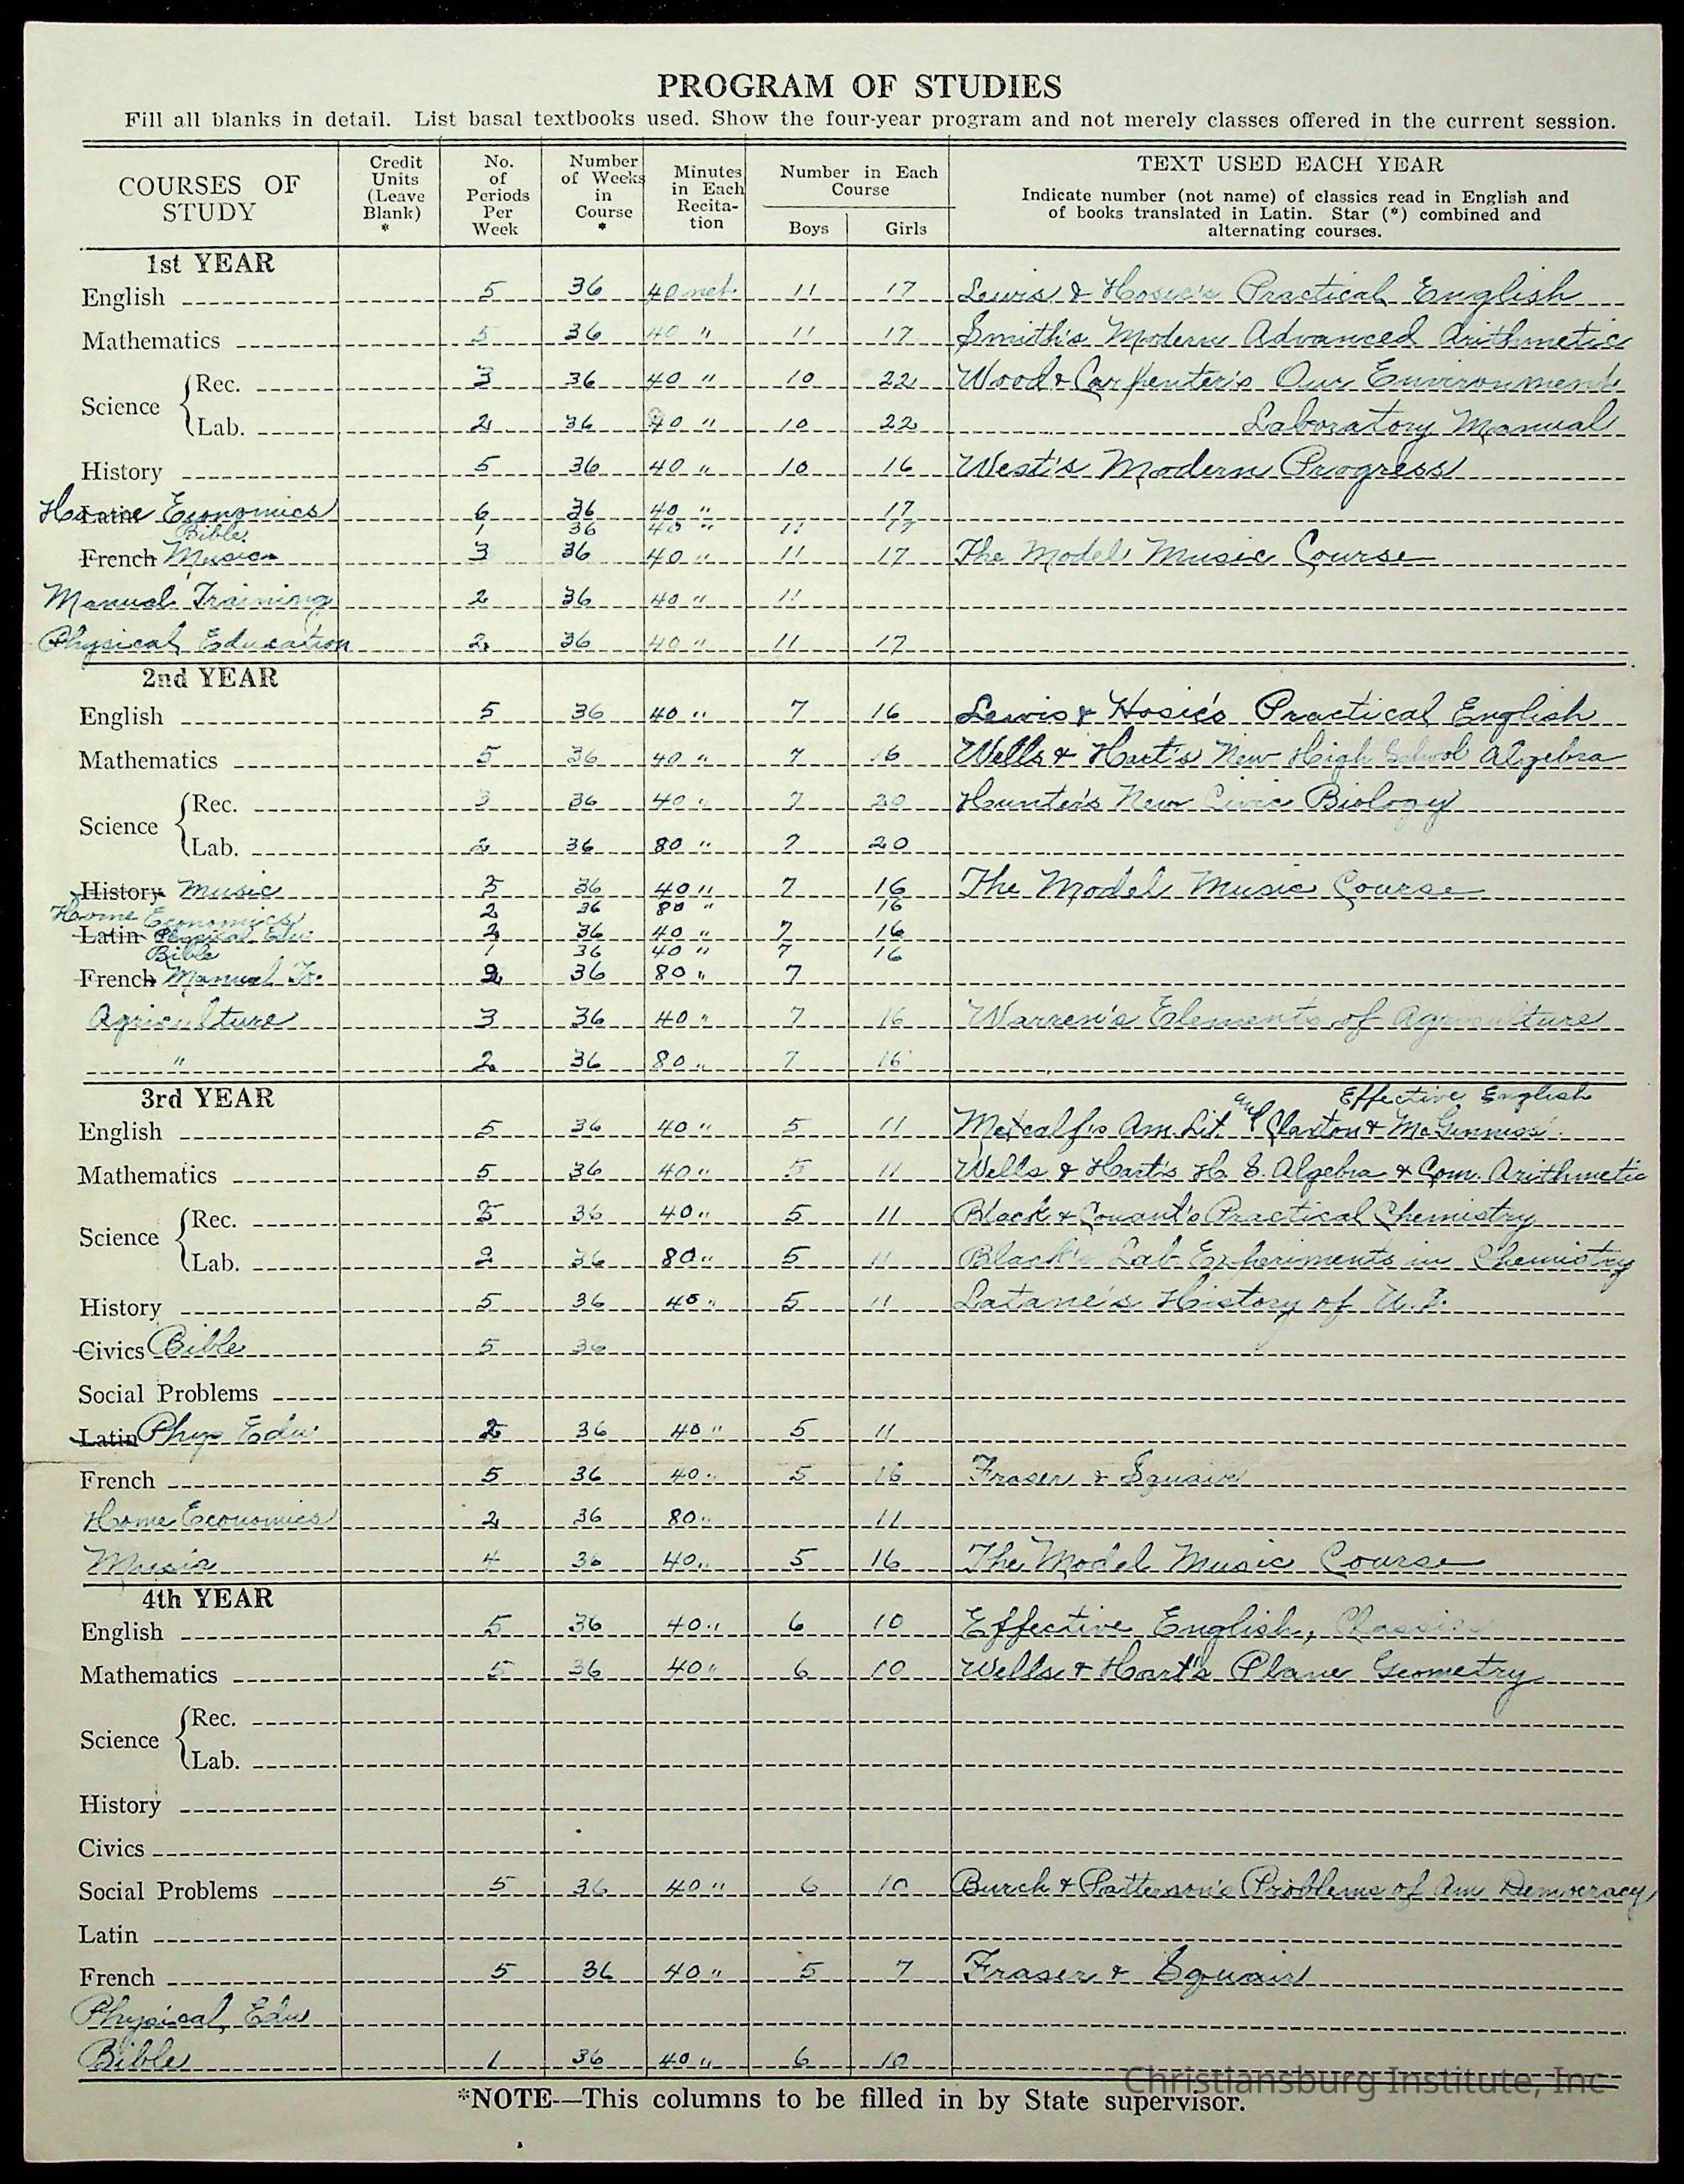 PROGRAM OF STUDIES
Fill all blanks in detail. List basal textbooks used. Show the four-year program and not merely classes offered in the current session.
COURSES OF STUDY | Credit Units (Leave Blank) * | No. of Periods Per Week | Number of Weeks in Course * | Minutes in Each Recitation | Number in Each Course Boys Girls | TEXT USED EACH YEAR
Indicate number (not name) of classics read in English and of books translated in Latin. Star (*) combined and alternating courses.
1st YEAR
English 5 36 40 net 11 17 Lewis & Hosic's Practical English
Mathematics 5 36 40 " 11 17 Smith's Modern Advanced Arithmetic
Science Rec. 3 36 40 " 10 22 Wood & Carpenter's Our Environment
Lab. 2 36 40 " 10 22 Laboratory Manual
History 5 36 40 " 10 16 West's Modern Progress
Latin Home Economics 6 36 40 " 17
Bible 1 36 40 " 11 17
French Music 3 36 40 " 11 17 The Model Music Course
Manual Training 2 36 40 " 11
Physical Education 2 36 40 " 11 17
2nd YEAR
English 5 36 40 " 7 16 Lewis & Hosic's Practical English
Mathematics 5 36 40 " 7 16 Wells & Hart's New High School Algebra
Science Rec. 3 36 40 " 7 20 Hunter's New Civic Biology
Lab. 2 36 80 " 7 20
History Music 36 40 " 7 16 The Model Music Course
Home Economics 2 36 80 " 16
Latin Physical Edu. 2 36 40 " 7 16
Bible 1 36 40 " 7 16
French Manual Tr. 2 36 80 " 7
Agriculture 3 36 40 " 7 16 Warren's Elements of Agriculture
" 2 36 80 " 7 16
3rd YEAR
Effective English
English 5 36 40 " 5 11 Metcalf's Am. Lit. and Claxton & McGinniss'
Mathematics 5 36 40 " 5 11 Wells & Hart's H. S. Algebra & Com. Arithmetic
Science Rec. 36 40 " 5 11 Black & Conant's Practical Chemistry
Lab. 2 36 80 " 5 11 Black's Lab Experiments in Chemistry
History 5 36 40 " 5 11 Latane's History of U.S.
Civics Bible 5 36
Social Problems
Latin Phys Edu. 2 36 40 " 5 11
French 5 36 40 " 5 16 Fraser & Squair
Home Economics 2 36 80 " 11
Music 4 36 40 " 5 16 The Model Music Course
4th YEAR
English 5 36 40 " 6 10 Effective English, Classics
Mathematics 5 36 40 " 6 10 Wells & Hart's Plane Geometry
Science Rec.
Lab.
History
Civics
Social Problems 5 36 40 " 6 10 Burch & Patterson's Problems of Am Democracy
Latin
French 5 36 40 " 5 7 Fraser & Squair
Physical Edu
Bible 1 36 40 " 6 10
Christiansburg Institute, Inc
*NOTE--This columns to be filled in by State supervisor.